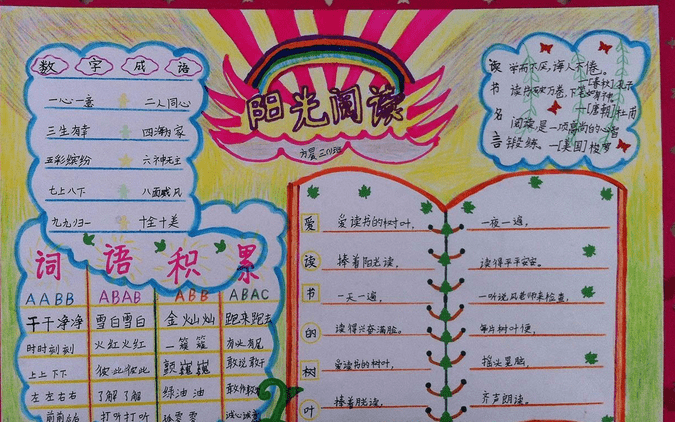 数字成语
一心一意 二人同心
三生有幸 四海为家
五彩缤纷 六神无主
七上八下 八面威风
九九归一 十全十美
阳光阅读
方晨 三(1)班
读书名言
学而不厌,诲人不倦。
—[春秋]孔子
读书破万卷,下笔如有神。
—[唐朝]杜甫
阅读是一项高尚的心智
锻炼。—[美国]梭罗
词语积累
AABB ABAB ABB ABAC
干干净净 雪白雪白 金灿灿 跑来跑去
时时刻刻 火红火红 一簇簇 有头有尾
上上下下 彼此彼此 颤巍巍 敢说敢干
左左右右 了解了解 绿油油
打听打听 诚心诚意
爱读书的树叶
爱读书的树叶,
捧着阳光读,
一天一遍,
读得兴奋满脸。
爱读书的树叶,
捧着月光读,
一夜一遍,
读得平平安安。
一听说风老师来检查,
每片树叶便,
摇头晃脑,
齐声朗读。